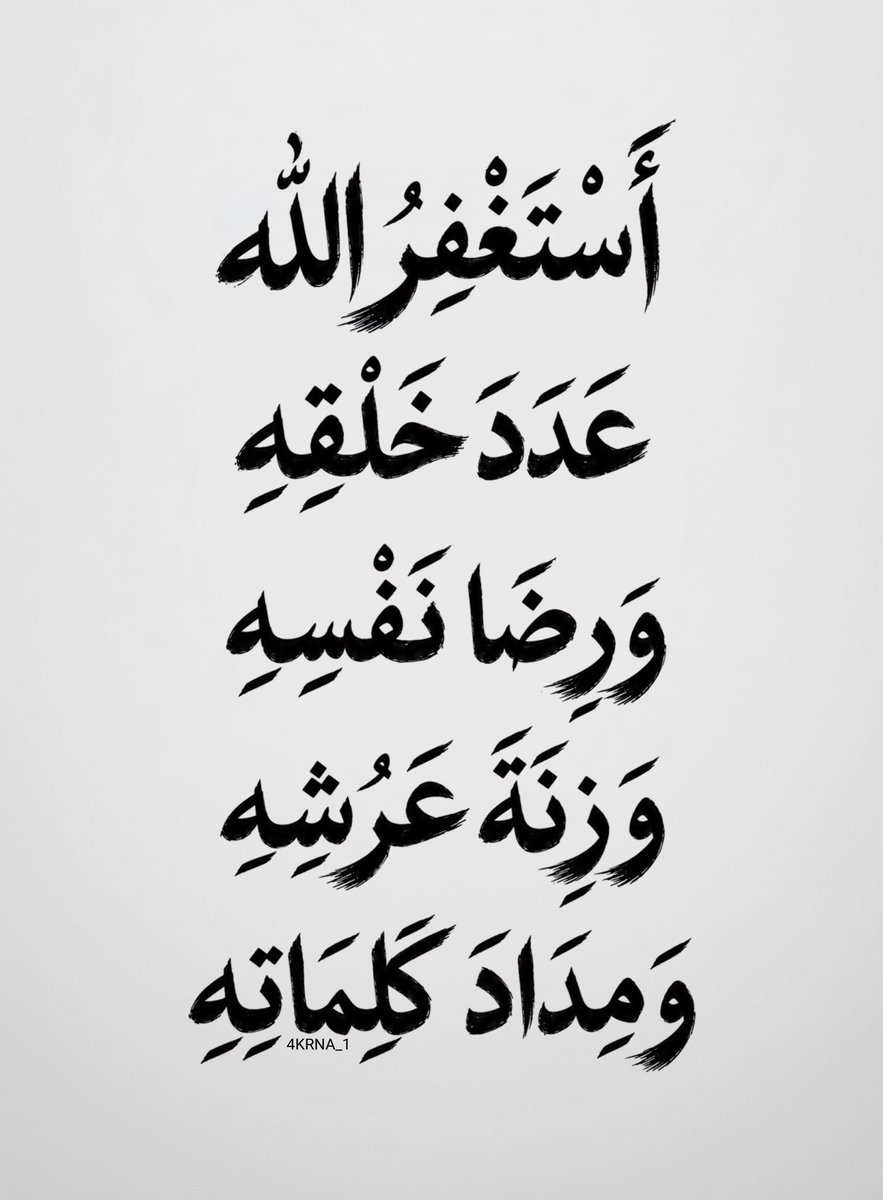 أَسْتَغْفِرُ اللّٰه
عَدَدَ خَلْقِهِ
وَرِضَا نَفْسِهِ
وَزِنَةَ عَرُشِهِ
وَمِدَادَ كَلِمَاتِهِ
4KRNA_1